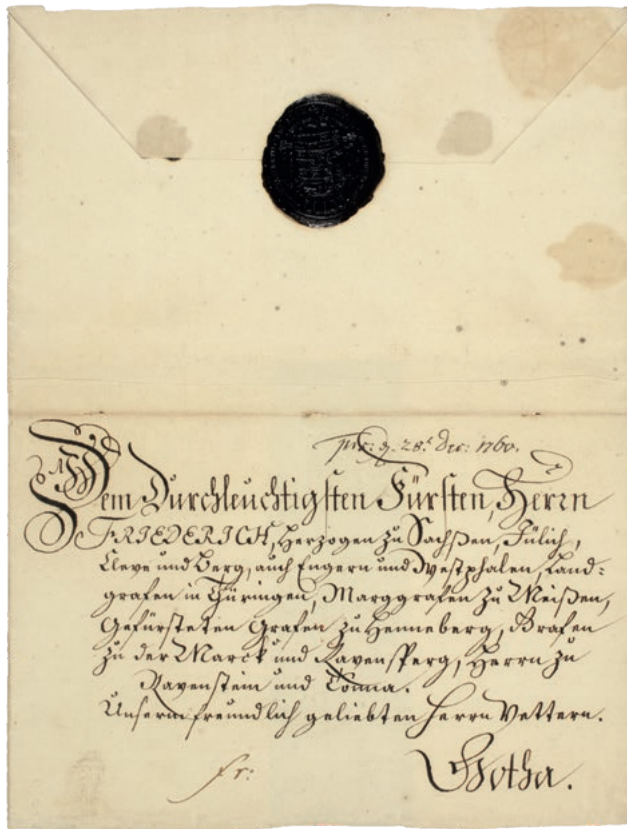 pr: d. 28.t Dec: 1760.
Dem Durchleuchtigsten Fürsten, Herrn
FRIEDERICH, Herzogen zu Sachßen, Jülich,
Cleve und Berg, auch Engern und Westphalen, Land-
grafen in Thüringen, Marggrafen zu Meißen,
Gefürsteten Grafen zu Henneberg, Grafen
zu der Marck und Ravensperg, Herrn zu
Ravenstein und Tonna.
Unserm freundlich geliebten Herrn Vettern.
fr:
Gotha.